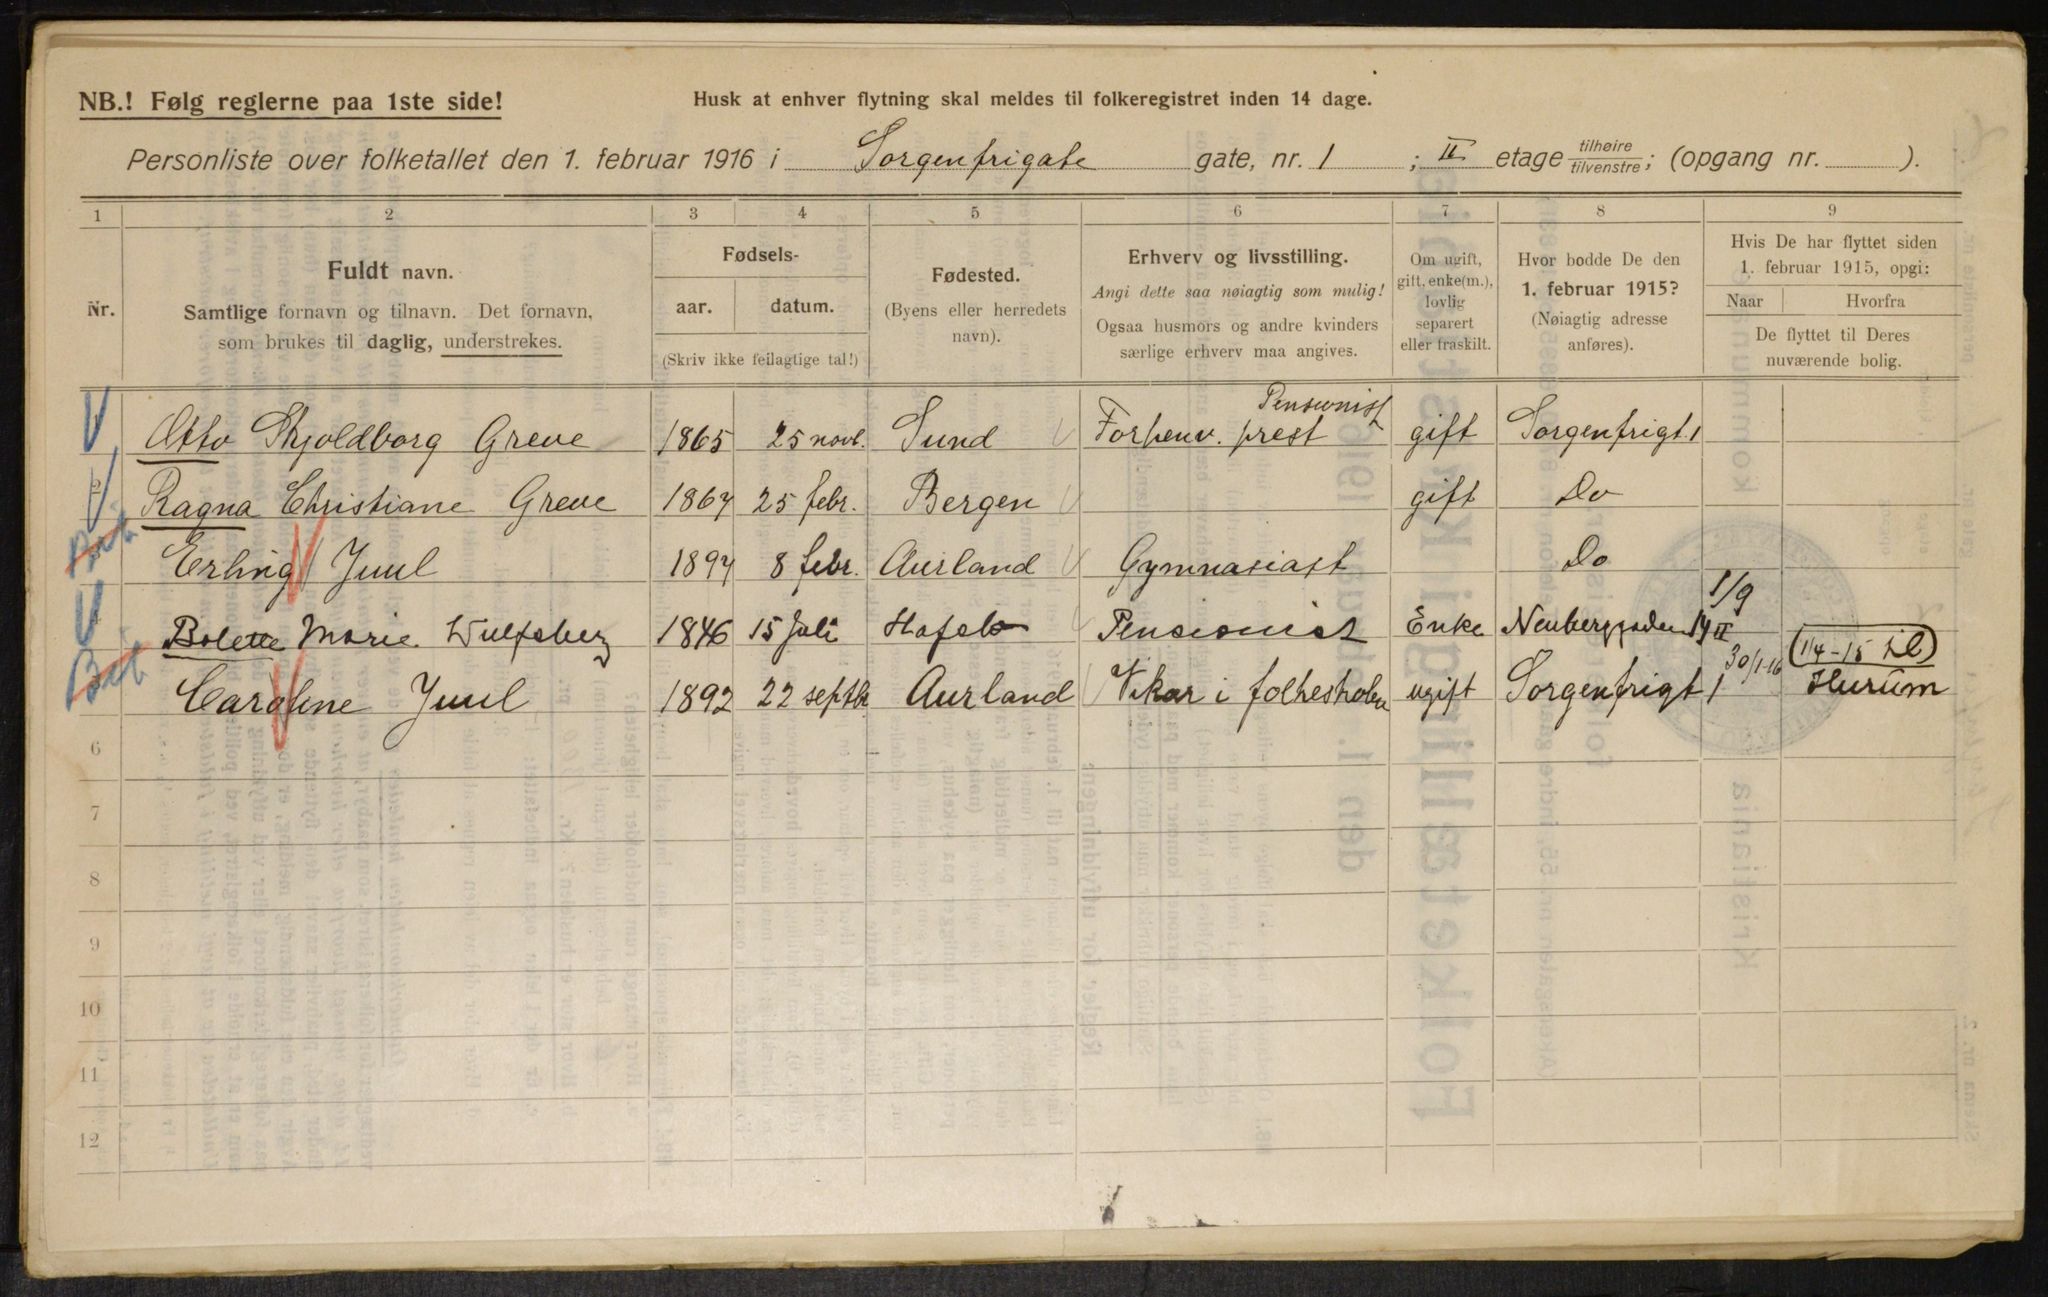 NB.! Følg reglerne paa 1ste side!
Husk at enhver flytning skal meldes til folkeregistret inden 14 dage.
Personliste over folketallet den 1. februar 1916 i Sorgenfrigate gate, nr. 1 ; II etage tilhøire tilvenstre; (opgang nr. ).
1 2 3 4 5 6 7 8 9
Nr.
Fuldt navn.
Samtlige fornavn og tilnavn. Det fornavn,
som brukes til daglig, understrekes.
Fødsels-
aar. datum.
(Skriv ikke feilagtige tal!)
Fødested.
(Byens eller herredets
navn).
Erhverv og livsstilling.
Angi dette saa nøiagtig som mulig!
Ogsaa husmors og andre kvinders
særlige erhverv maa angives.
Om ugift,
gift, enke(m.),
lovlig
separert
eller fraskilt.
Hvor bodde De den
1. februar 1915?
(Nøiagtig adresse
anføres).
Hvis De har flyttet siden
1. februar 1915, opgi:
Naar Hvorfra
De flyttet til Deres
nuværende bolig.
Pensionist
Otto Skjoldborg Greve 1865 25 novb. Sund Forhenv. prest gift Sorgenfrigt. 1
2 Ragna Christiane Greve 1867 25 febr. Bergen gift Do
Erling Juul 1897 8 febr. Aurland Gymnasiast Do
1/9
Bolette Marie Wulfsberg 1846 15 Juli Hafslo Pensionist Enke Neuberggaden 14 II
30/1-16 1/4-15 til
Caroline Juul 1892 22 septbr Aurland Vikar i folkeskolen ugift Sorgenfrigt 1 Hurum
6
7
8
9
10
11
12